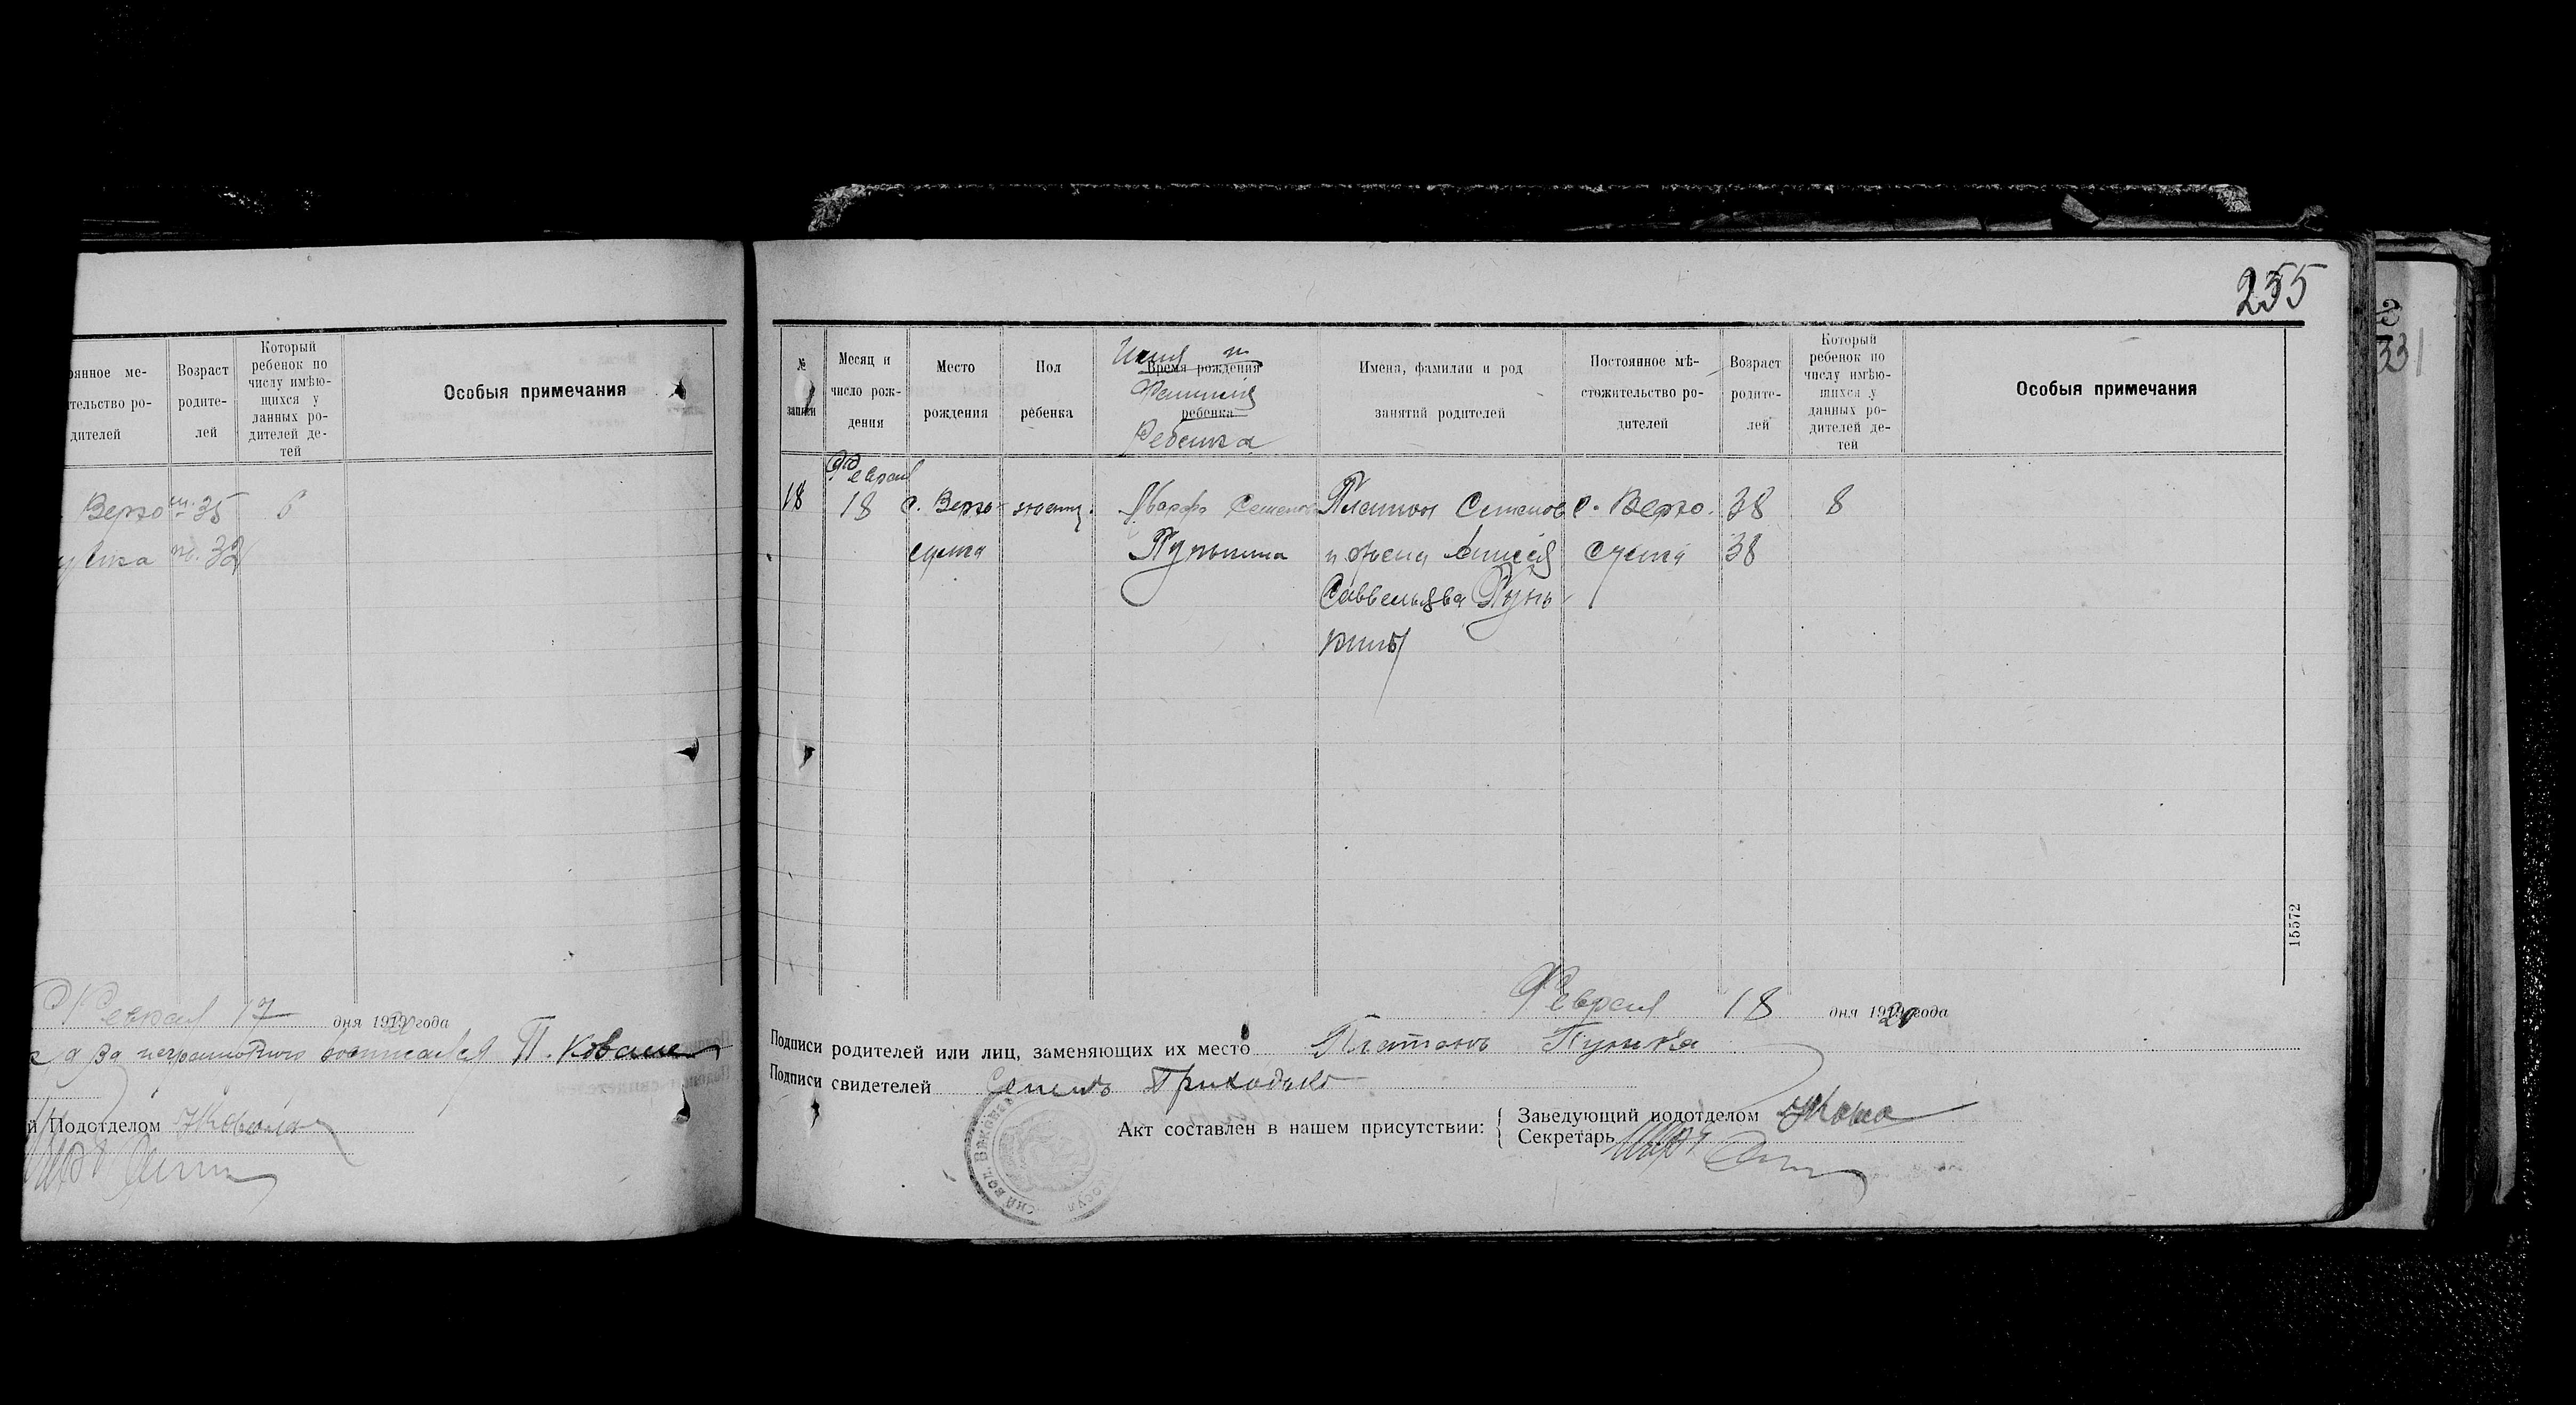 255
оянное ме-
тельство ро-
дителей
Возраст
родите-
лей
Который
ребенок по
числу имѣю-
щихся у
данных ро-
дителей де-
тей
Особыя примечания
Верхо
35
6
32
Февраля 17 дня 1919 20 года
за неграмотного росписался П. Ковале
й Подотделом
№ записи
Месяц и
число рож-
дения
Место
рождения
Пол
ребенка
Имя и
Время рождения
Фамилия
ребенка
Ребенка
Имена, фамилии и род
занятий родителей
Постоянное мѣ-
стожительство ро-
дителей
Возраст
родите-
лей
Который
ребенок по
числу имѣю-
щихся у
данных ро-
дителей де-
тей
Особыя примечания
Февраля
18 18 с. Верхо- женщ. Марфа Семенов Платон Семенов с. Верхо. 38 8
сулка Пунькина и жена Анисия сулка 38
Саввельева Пунь
кины
15572
Февраля 18 дня 1919 20 года
Подписи родителей или лиц, заменяющих их место Платонъ Пунька
Подписи свидетелей Семенъ Приходько
Акт составлен в нашем присутствии:
Заведующий подотделом
Секретарь
331